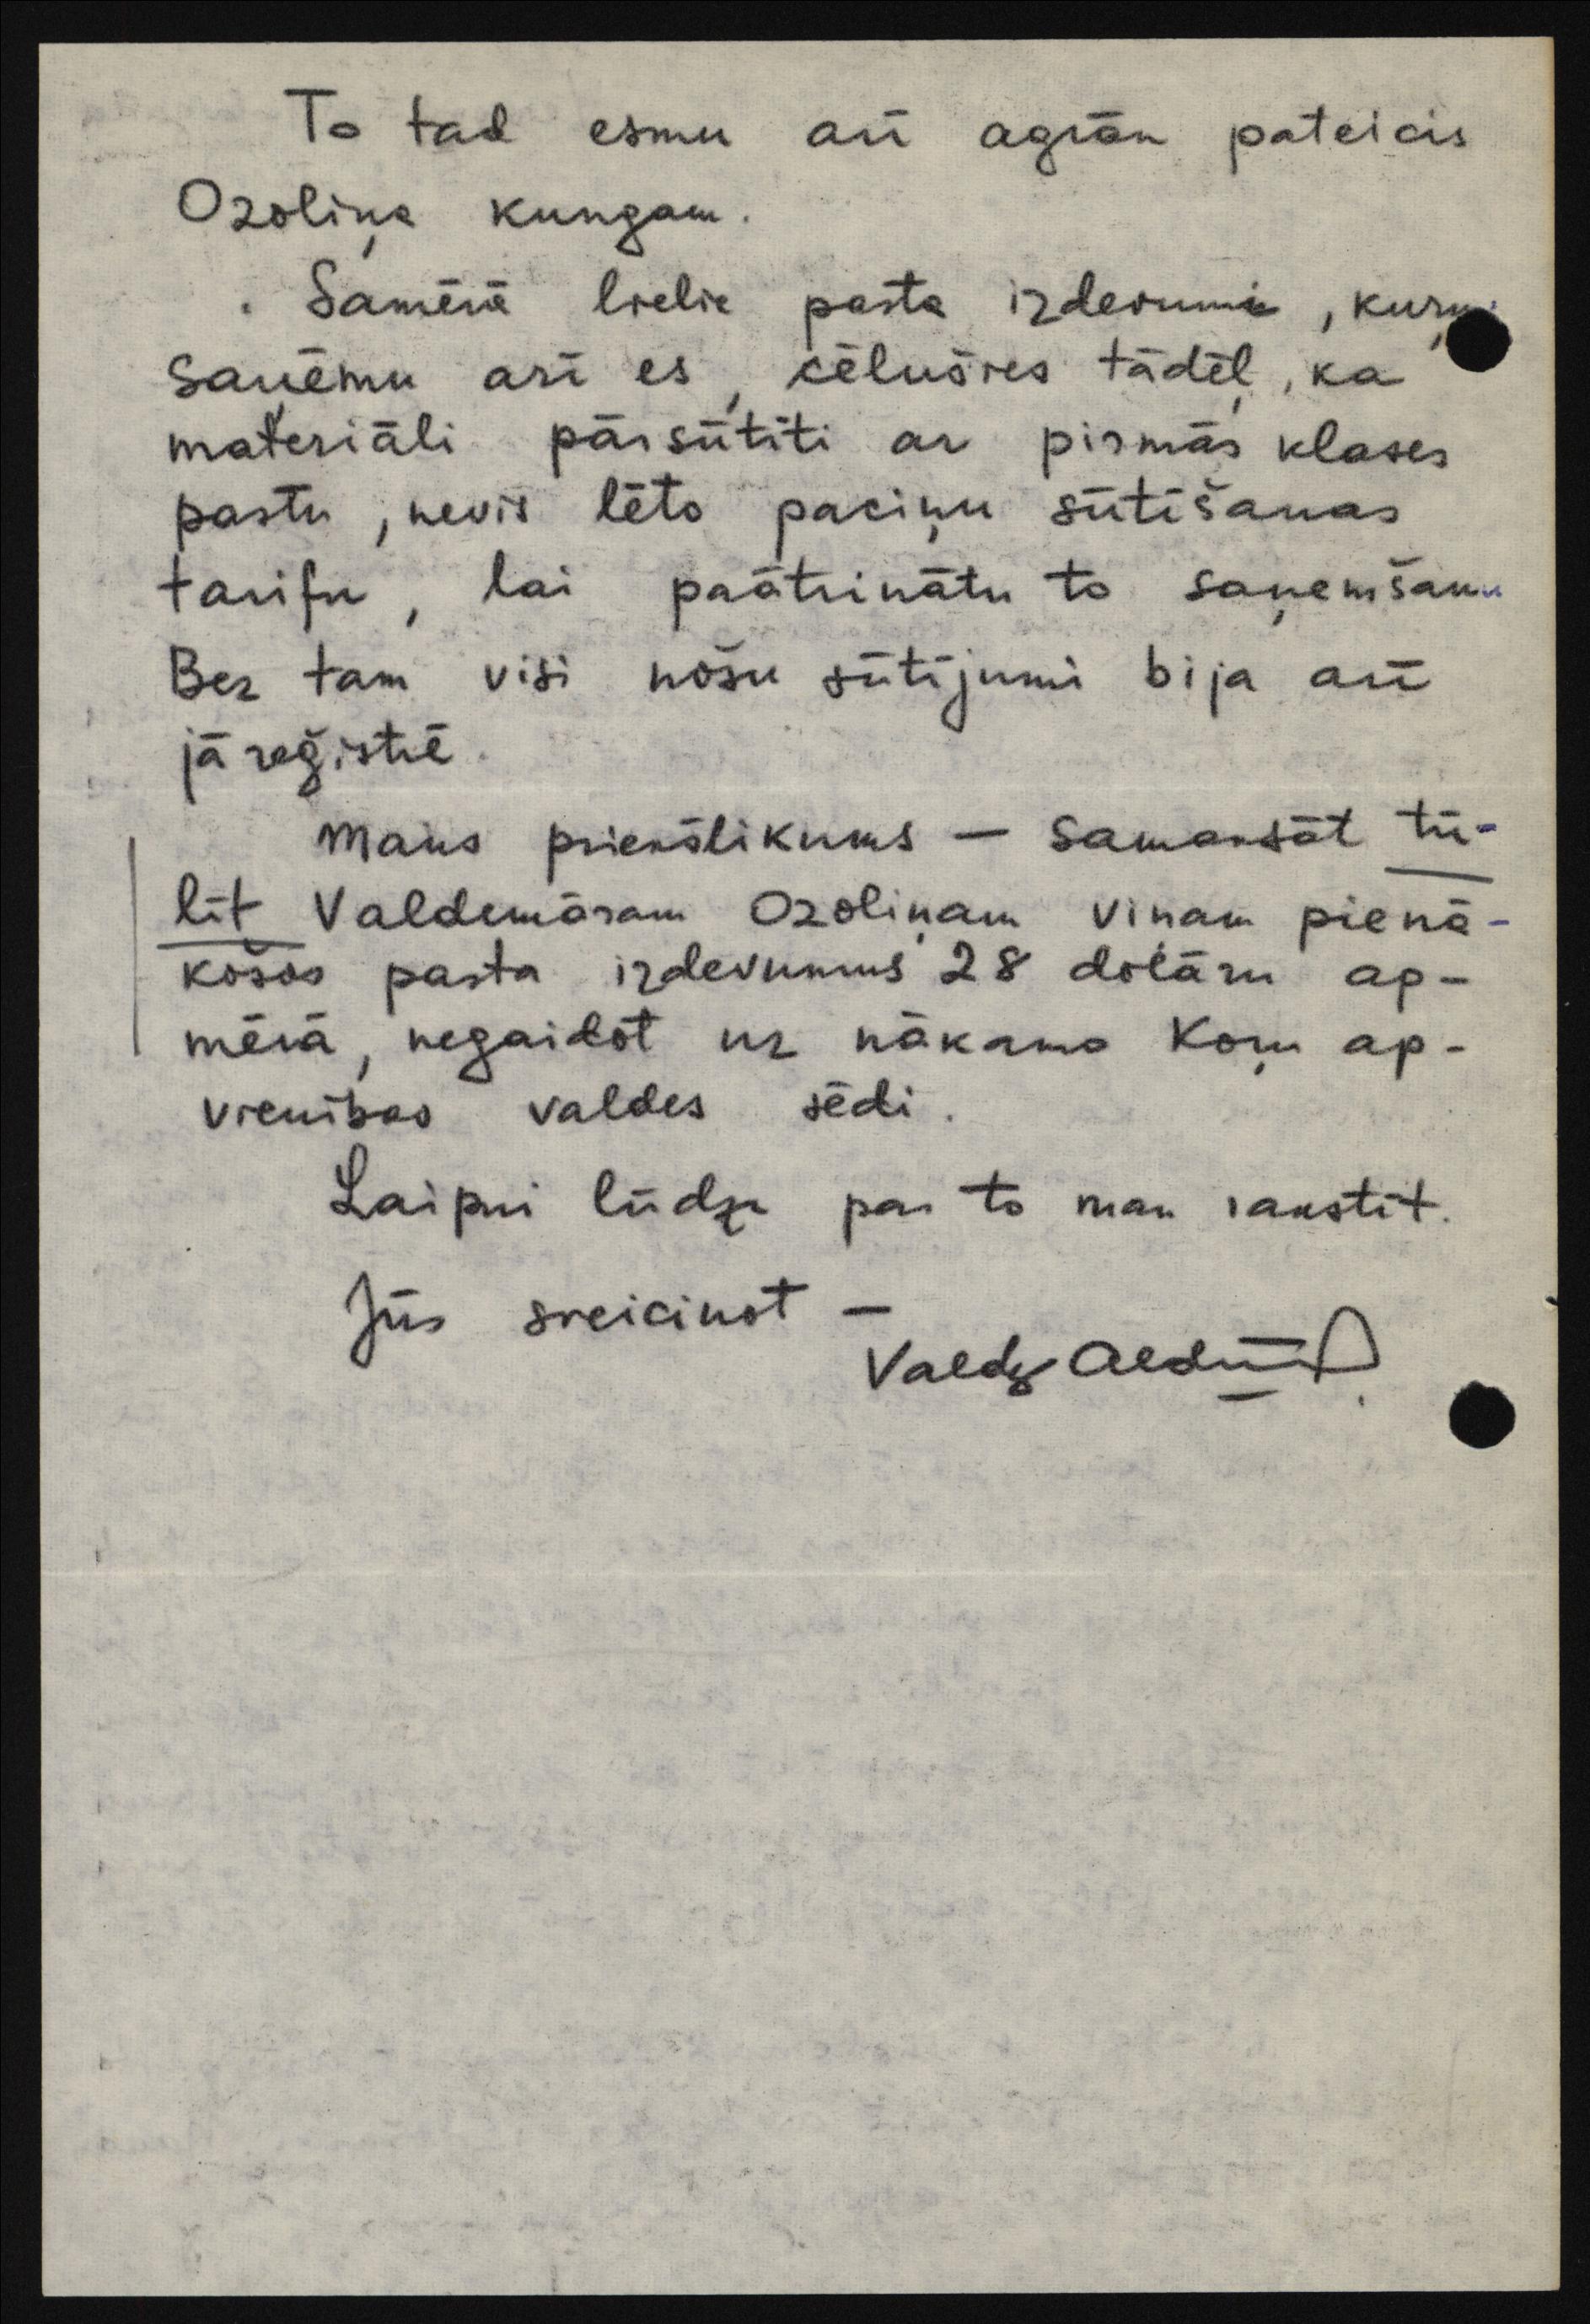 To tad esmu arī agrāk pateicis
Ozoliņa kungam.
Samērā lielie pasta izdevumi, kuŗus
saņēmu arī es, cēlušies tādēļ, ka
materiāli pārsūtīti ar pirmās klases
pastu, nevis lēto paciņu sūtīšanas
tarifu, lai paātrinātu to saņemšanu
Bez tam visi nošu sūtījumi bija arī
jāreģistrē.
Mans priekšlikums — samaksāt tū-
līt Valdemāram Ozoliņam viņam pienā-
košos pasta izdevumus 28 dolāru ap-
mērā, negaidot uz nākamo Koŗu ap-
vienības valdes sēdi.
Laipni lūdzu par to man rakstīt.
Jūs sveicinot —